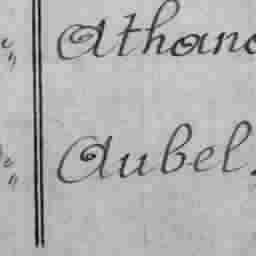 Athanc
Aubel.